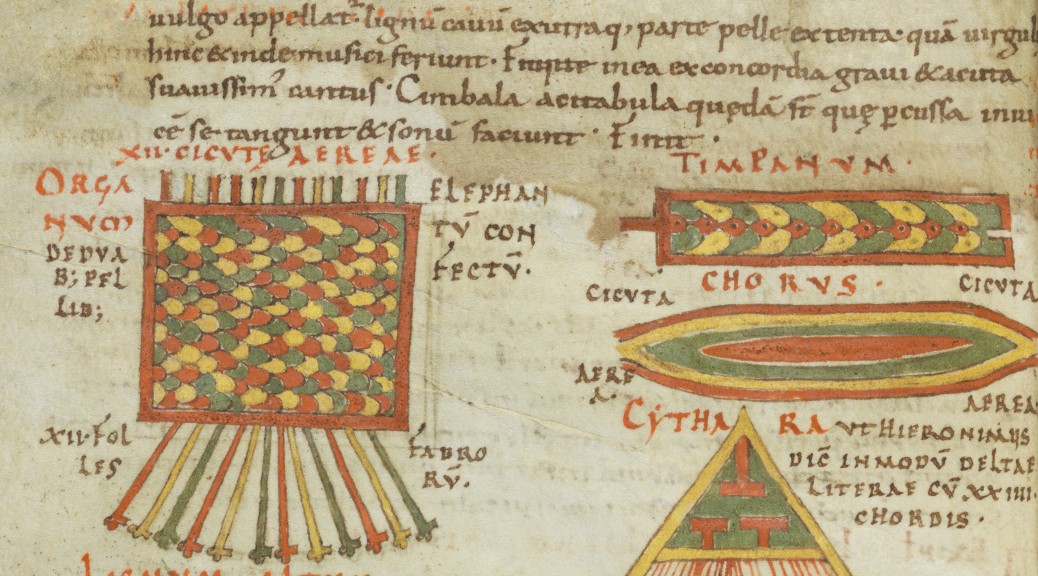 uulgo appellat̄. lignū cauū exutraq; parte pelle extenta. quā uirgul
hinc & inde musici feriunt. Fitque in ea ex concordia graui & acuta
suauissim᾽ cantus. Cimbala acitabula quędā st̄ quę p̱cussa inui
cē se tangunt & sonū faciunt. Finit.
XII·CICUTĘ AEREAE.
ORGA
NUM
DE DUA
B; PEL
LIB;
ELEPHAN
TŪ CON
FECTŪ.
XII·FOL
LES
FABRO
RŪ.
TIMPANUM·
CHORUS·
CICUTA
CICUTA
AERE
A·
AEREA
CYTHARA UT HIERONIMUS
DIC̄ IN MODŪ DELTAE
LITERAE CŪ·XXIIII·
CHORDIS·